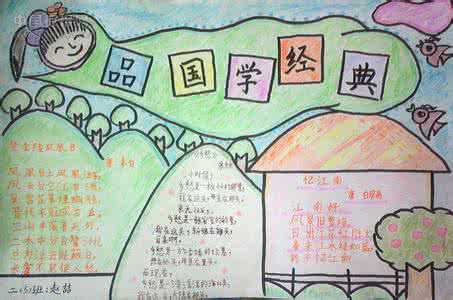 品国学经典
登金陵凤凰台
唐 李白
凤凰台上凤凰游,
凤去台空江自流。
吴宫花草埋幽径,
晋代衣冠成古丘。
三山半落青天外,
二水中分白鹭洲。
总为浮云能蔽日,
长安不见使人愁。
二(5)班:赵
《乡愁》
小时候,
乡愁是一枚小小的邮票,
我在这头,母亲在那头。
长大后,
乡愁是一张窄窄的船票,
我在这头,新娘在那头。
后来啊,
乡愁是一方矮矮的坟墓,
我在外头,母亲在里头。
而现在,
乡愁是一湾浅浅的海峡,
我在这头,大陆在那头
忆江南
唐 白居易
江南好,
风景旧曾谙。
日出江花红胜火,
春来江水绿如蓝,
能不忆江南